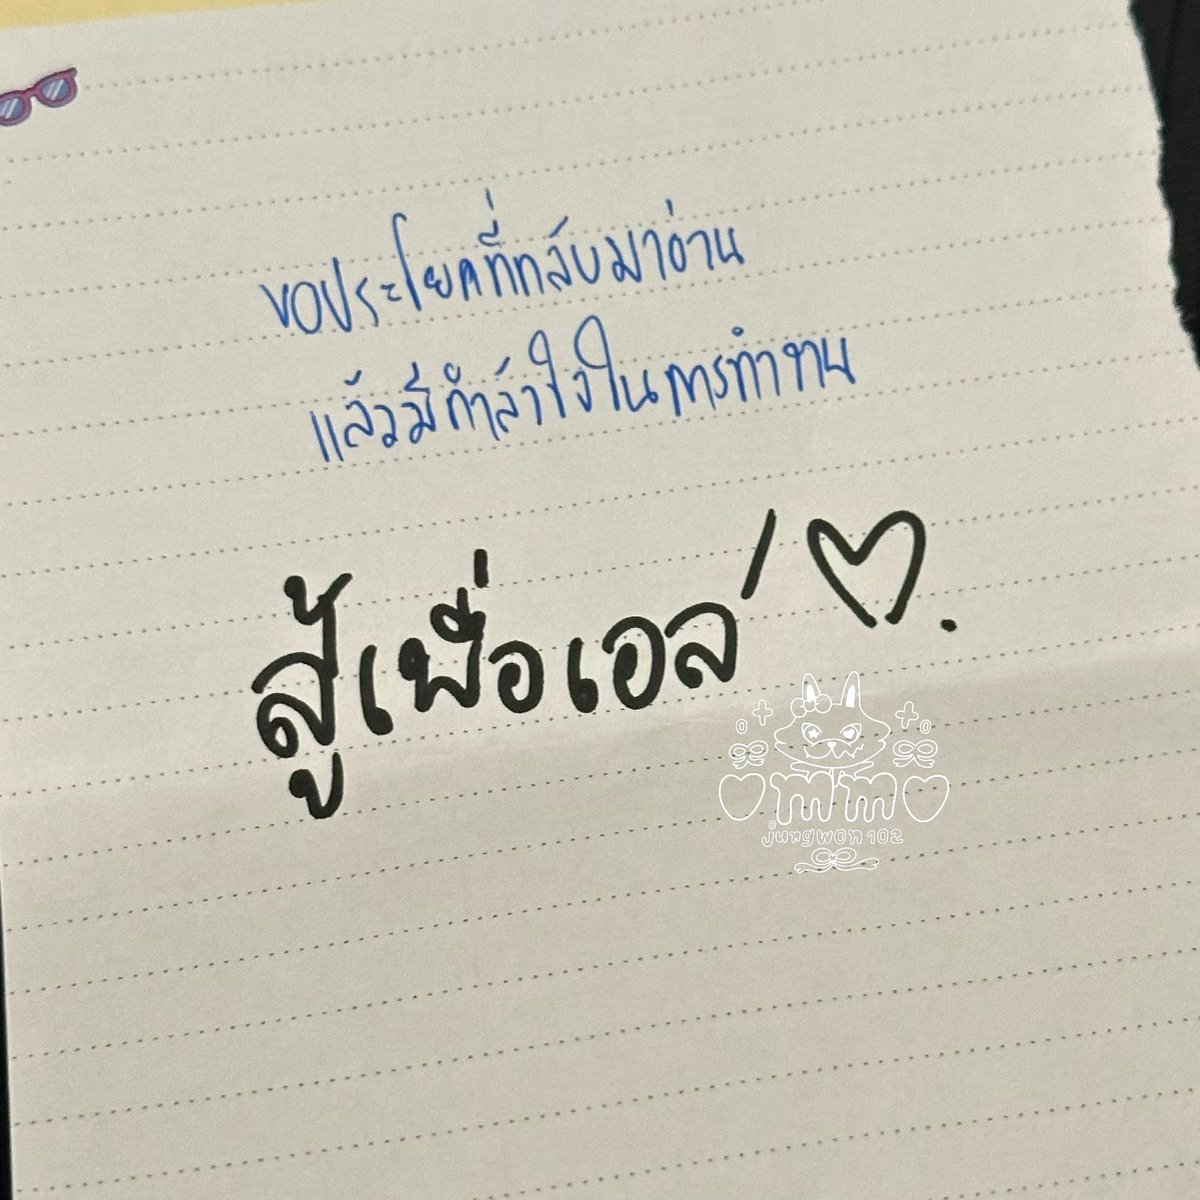 ขอประโยคที่กลับมาอ่าน
แล้วมีกำลังใจในการทำงาน
สู้เพื่อเอล' ♡.
mm
jungwon102